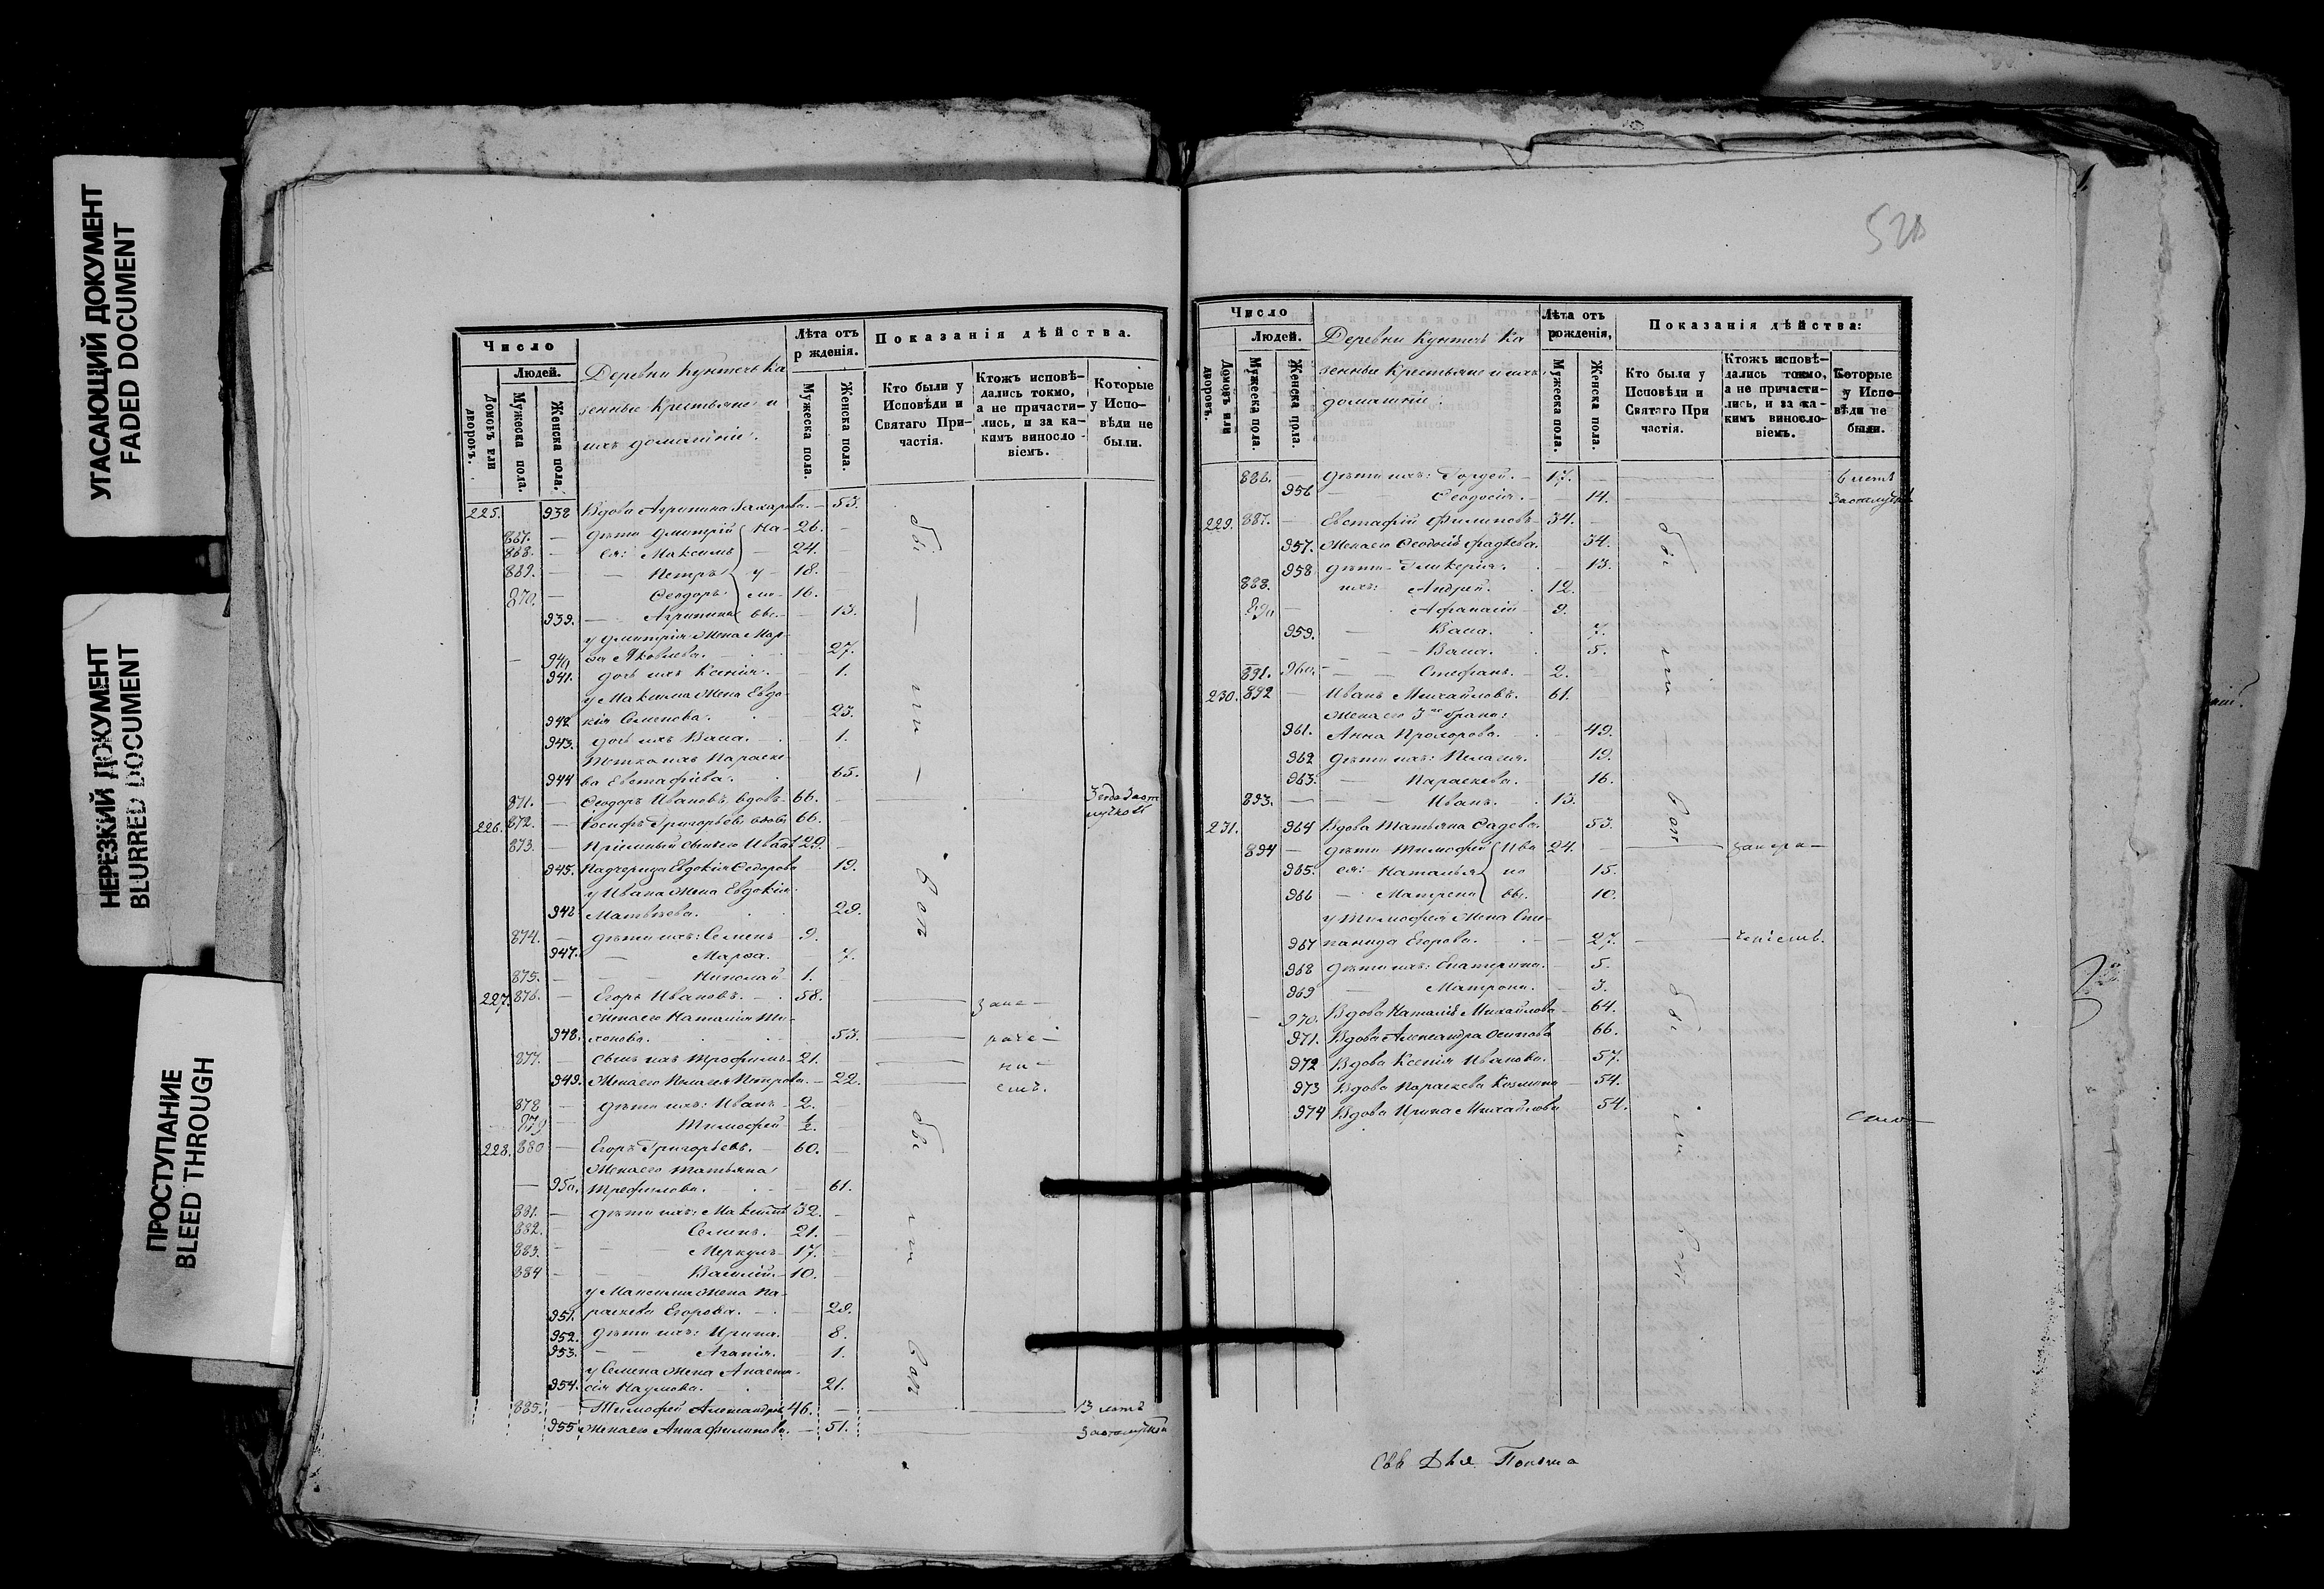 УГАСАЮЩИЙ ДОКУМЕНТ
FADED DOCUMENT
НЕРЕЗКИЙ ДОКУМЕНТ
BLURRED DOCUMENT
ПРОСТУПАНИЕ
BLEED THROUGH
Число
Людей.
Домовъ или дворовъ.
Мужеска пола.
Женска пола.
Деревни Кунтечь Ка
зенные Крестьяне и
ихъ домашніи:
Лѣта отъ
р жденія.
Мужеска пола.
Женска пола.
Показанія дѣйства.
Кто были у
Исповѣди и
Святаго При-
частія.
Ктожъ исповѣ-
дались токмо,
а не причасти-
лись, и за ка-
кимъ виносло-
віемъ.
Которые
у Испо-
вѣди не
были.
225. 938 Вдова Агрипина Захарова. 53.
867. дѣти Дмитрій 26.
868. ея: Максимъ 24.
869. Петръ 18.
870. Ѳеодоръ 16.
939. Агрипина 13.
у Дмитрія Жена Мар-
940 ѳа Яковлева. 27.
941. дочь ихъ Ксенія. 1.
у Максима Жена Евдо-
942 кія Семенова. 23.
943. дочь ихъ 1.
Тетка ихъ Параске-
944 ва Евстафіева. 65.
871. Ѳеодоръ Ивановъ вдовъ 66.
226. 872. Іосифъ Григорьевъ вдовъ 66.
873. Пріемный сынъ его Иванъ 29.
945. Падчерица Евдокія Ѳедорова 19.
у Ивана Жена Евдокія
946 Матвѣева. 29.
874. дѣти ихъ: Семенъ 9.
947. Марѳа. 7.
875. Николай 1.
227. 876. Егоръ Ивановъ. 58. зане-
Жена его Наталія Ти-
948. хонова. 53. раче-
877. сынъ ихъ Трофимъ 21. ни-
949. Жена его Пелагея Петрова. 22. емъ.
878 дѣти ихъ: Иванъ 2.
879 Тимофей 1/2.
228. 880 Егоръ Григорьевъ. 60.
Жена его Татьяна
950. Трефилова. 61.
881. дѣти ихъ: Максимъ 32.
882. Семенъ. 21.
883. Меркулъ 17.
884 Василій 10.
у Максима Жена Па-
951. раскева Егорова. 29.
952. дѣти ихъ: Ирина. 8.
953. Агапія. 1.
у Семена Жена Анаста-
954. сія Наумова. 21.
885. Тимофей Александровъ 46. 13 летъ
955 Жена его Анна Филипова. 51.
бы — ли — вси
бы ли вси
528
Число
Людей.
Домовъ или дворовъ.
Мужеска пола.
Женска пола.
Деревни Кунтечь Ка
зенные Крестьяне и ихъ
домашніи:
Лѣта отъ
рожденія,
Мужеска пола.
Женска пола.
Показанія дѣйства:
Кто были у
Исповѣди и
Святаго При
частія.
Ктожъ исповѣ-
дались токмо,
а не причасти-
лись, и за ка-
кимъ виносло-
віемъ.
Которые
у Испо-
вѣди не
были.
886. дѣти ихъ: Гордей. 17. 6 летъ
956 Ѳеодосія. 14.
229. 887. Евстафій Филиповъ 34.
957. Жена его Ѳеодосія Фадѣева. 34.
958 дѣти Гликерія. 13.
888. ихъ: Андрей. 12.
890 Афанасій 9.
959. 7.
5.
891. 960. Стефанъ. 2.
230. 892 Иванъ Михайловъ. 61.
Жена его 3го брака:
961. Анна Прохорова. 49.
962 дѣти ихъ: Пелагія. 19.
963. Параскева. 16.
893. Иванъ. 13.
231. 964 Вдова Татьяна Фадѣева. 53.
894 дѣти Тимофей 24. занера-
965. ея: Наталья 15.
966 Матрена 10.
у Тимофея Жена Сте-
967 панида Егорова. 27. ченіемъ.
968 дѣти ихъ: Екатерина. 5.
969 Матрона. 3.
970. Вдова Наталія Михайлова 64.
971. Вдова Александра Осипова 66.
972 Вдова Ксенія Иванова. 57.
973 Вдова Параскева Козмина 54.
974 Вдова Ирина Михайлова 54.
бы ли — вси
бы ли вси